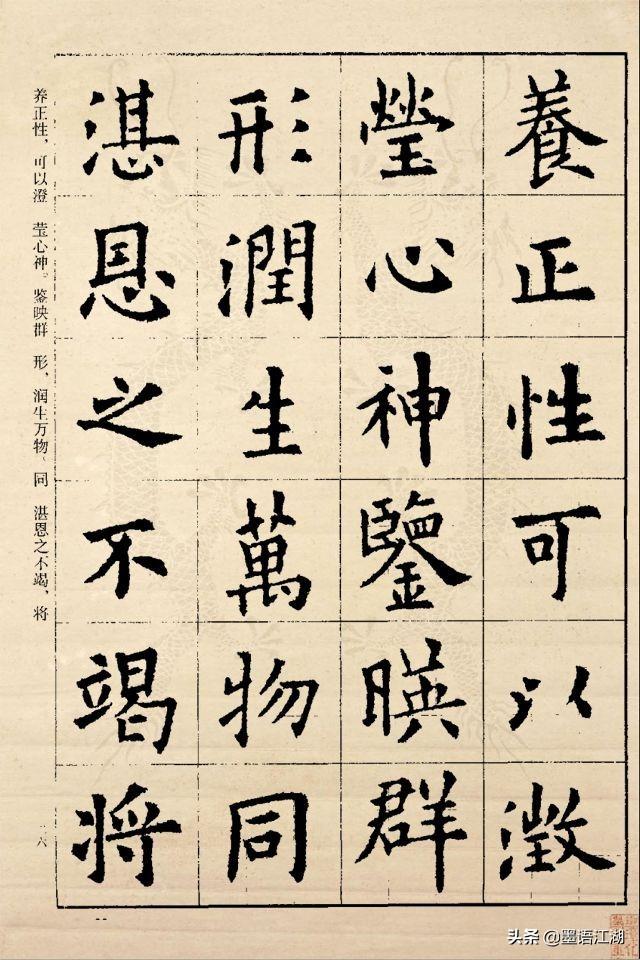 養正性可以澂
瑩心神鑒暎群
形潤生萬物同
湛恩之不竭将
养正性,可以澄 莹心神。鉴映群 形,润生万物,同 湛恩之不竭,将
二六
头条@墨语江湖